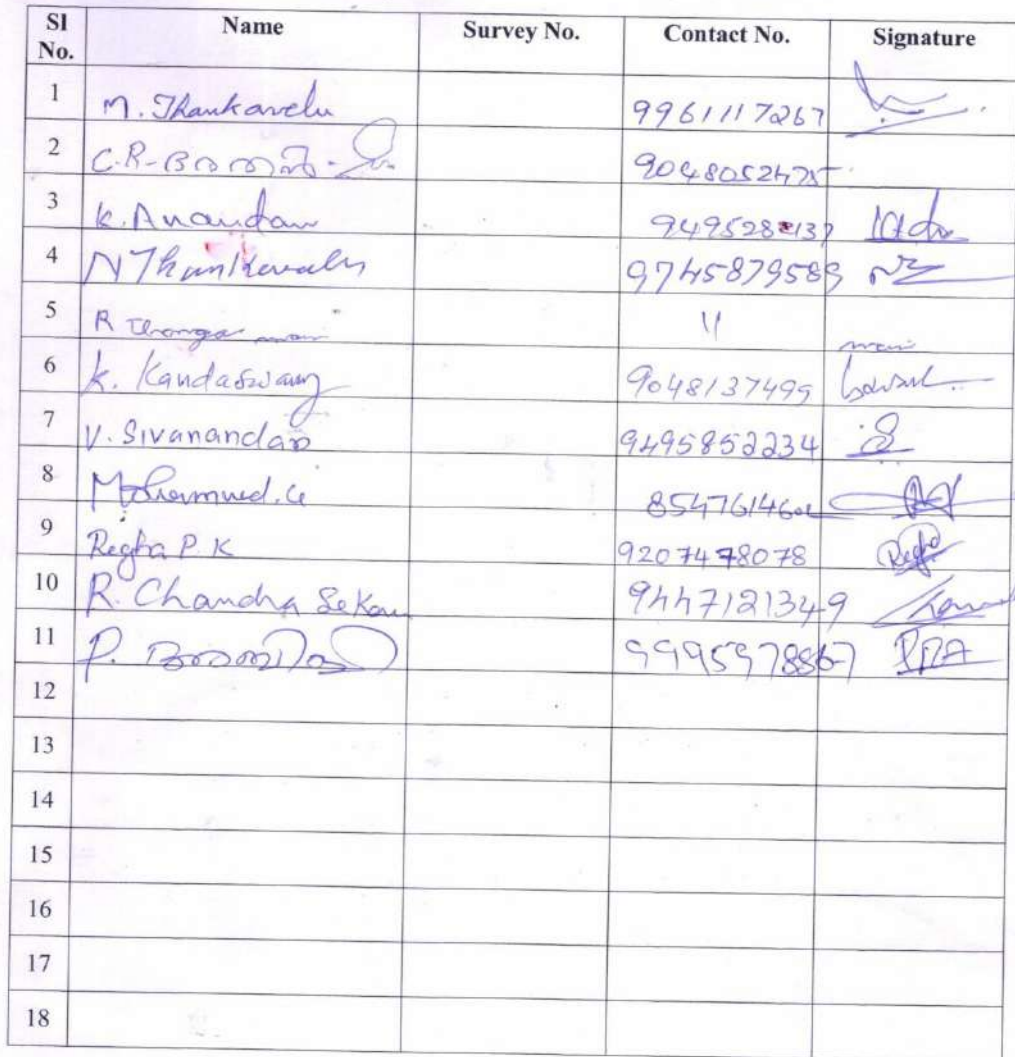 Sl No. Name Survey No. Contact No. Signature
1 M. Thankavelu 9961117267
2 C.R.
3 K. Anandan 9495282137
4 N Thankavelu 9745879589
5 R Thangamani 11 mani
6 K. Kandaswamy 9048137499
7 V. Sivanandan 9495852234
8 Mohammed. 
9 Regha P K 9207478078 Regha
10 R. Chandra Sekar 9447121349
11 P. 9995978867
12
13
14
15
16
17
18